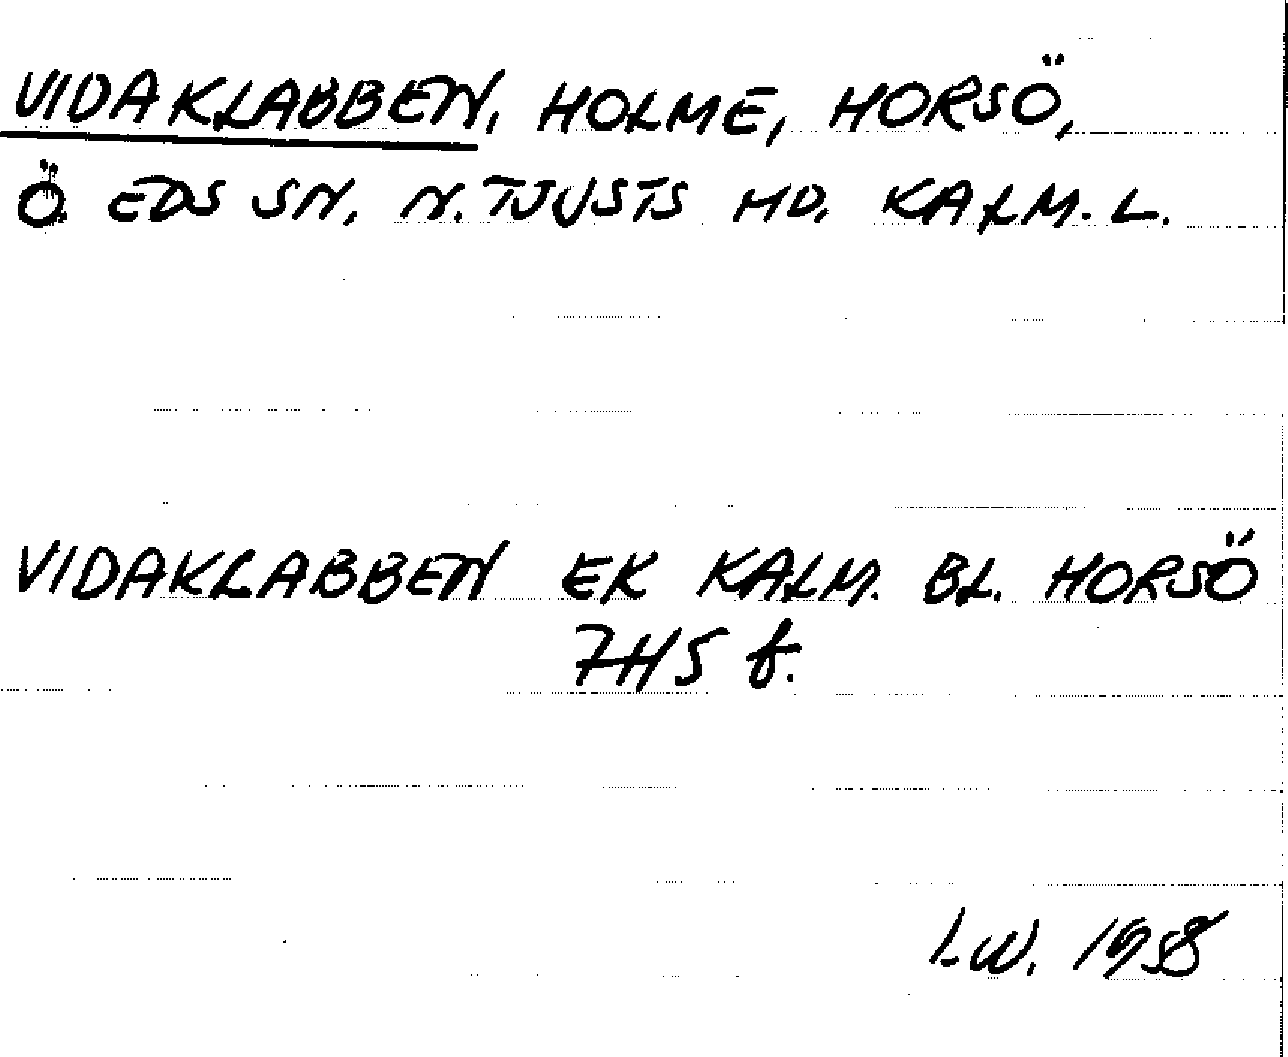 VIDAKLABBEN, HOLME, HORSÖ,
Ö. EDS SN. N. TJUSTS HD. KALM. L.
VIDAKLABBEN EK KALM. BL. HORSÖ
7H5 f.
I.W. 1958